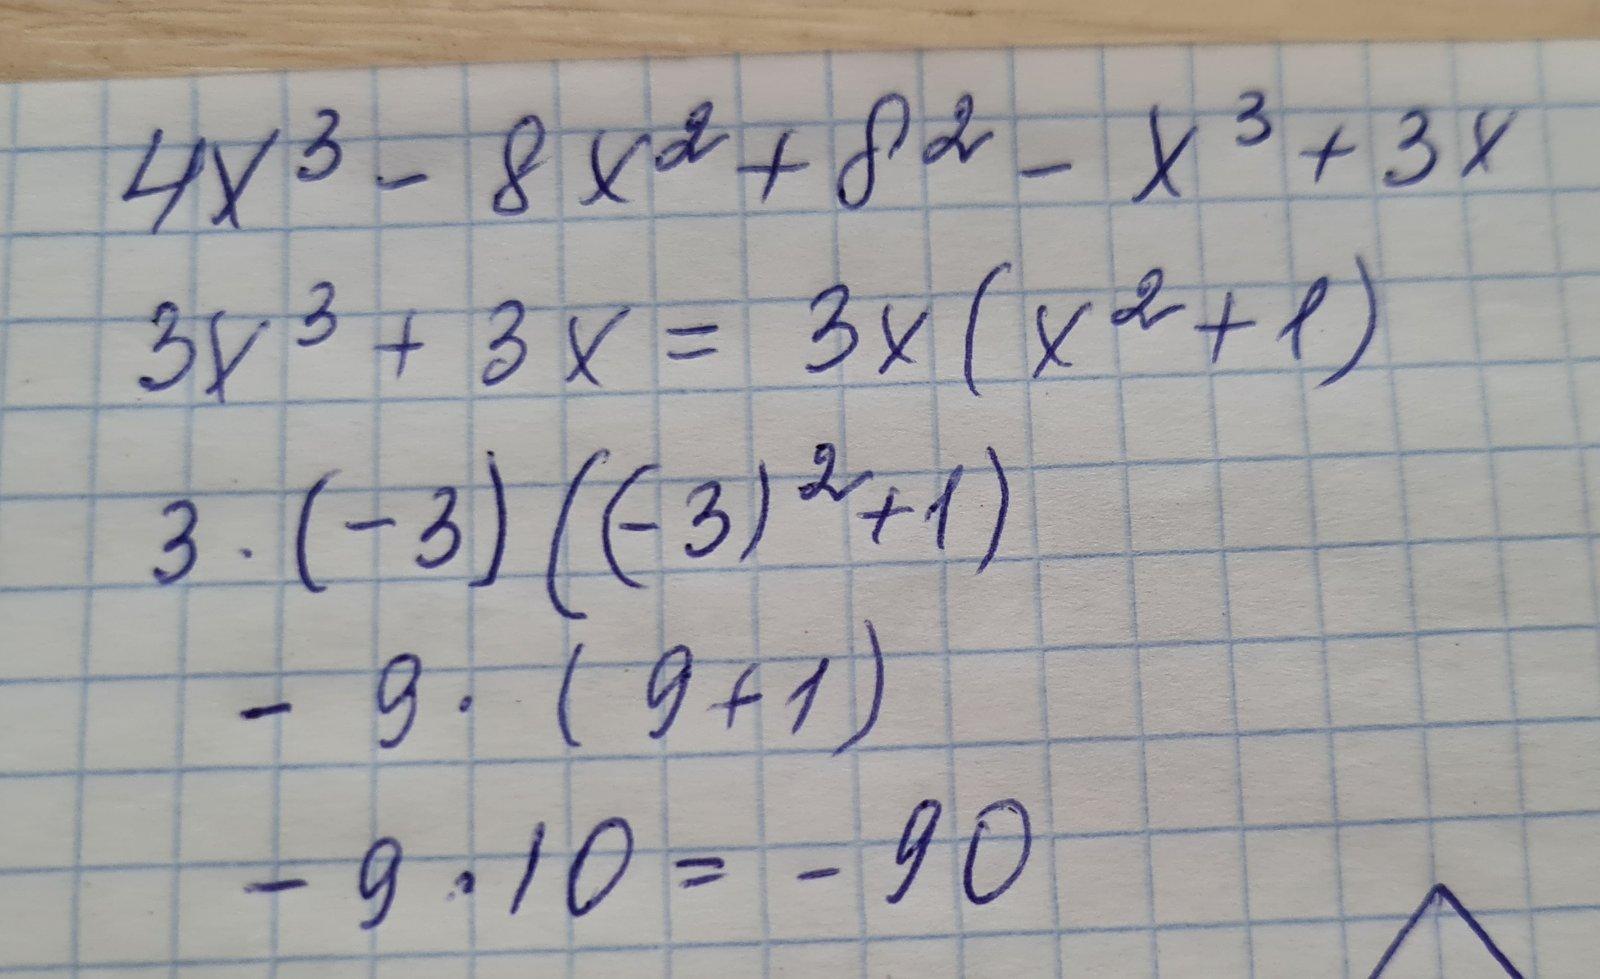 4x³ - 8x² + 8² - x³ + 3x
3x³ + 3x = 3x(x² + 1)
3 · (-3)((-3)² + 1)
- 9 · (9 + 1)
- 9 · 10 = - 90